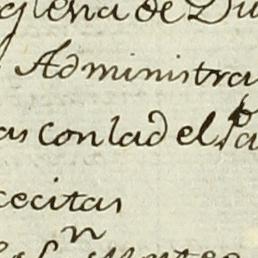 glena de Du
Administra
as con lad el Pa
cecitas